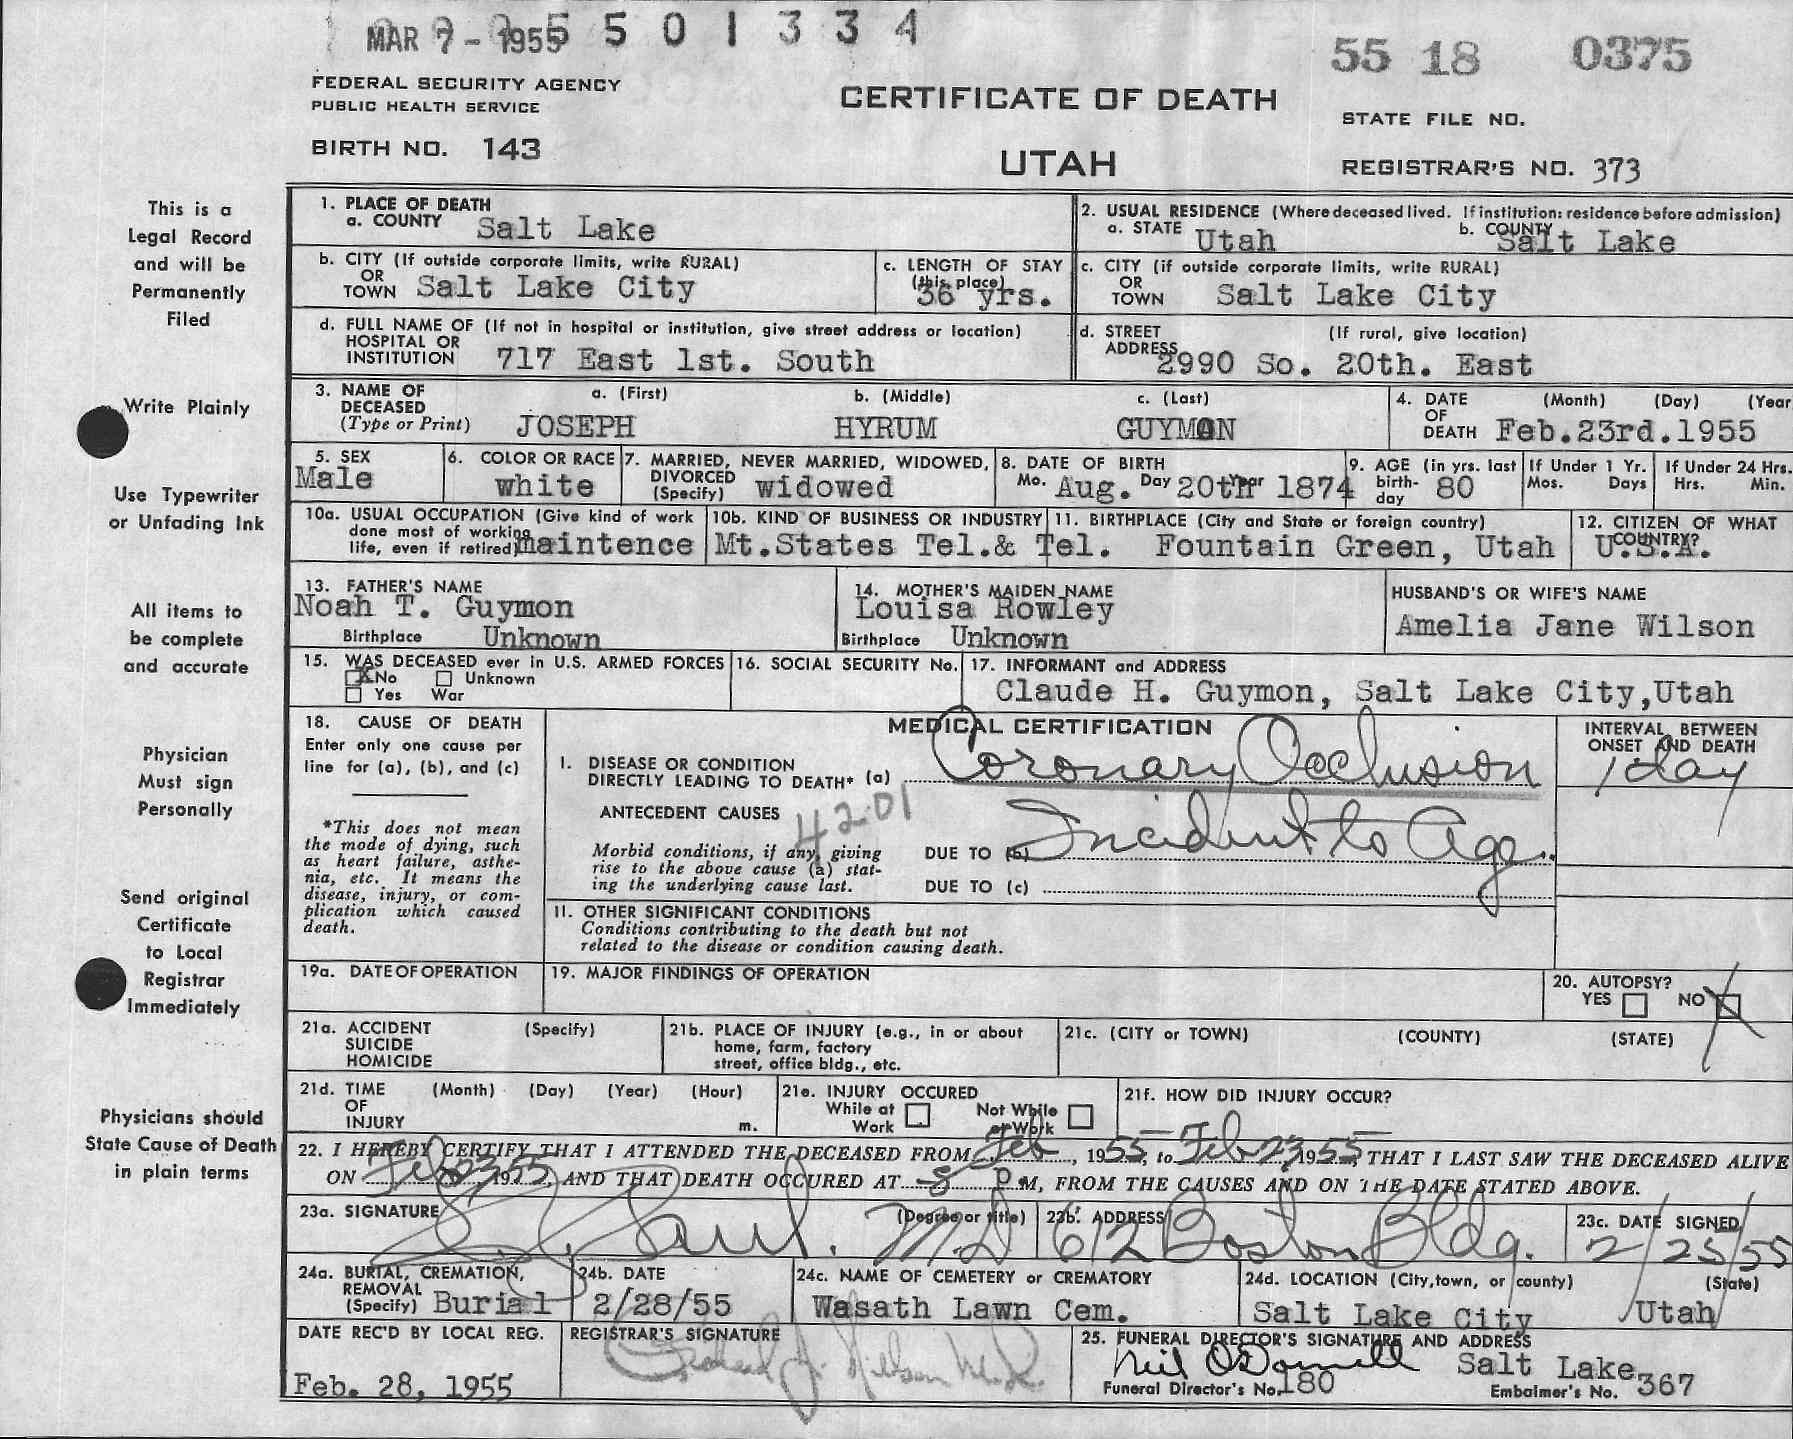 MAR 7 - 1955 5 5 0 1 3 3 4
55 18 0375
FEDERAL SECURITY AGENCY
PUBLIC HEALTH SERVICE
CERTIFICATE OF DEATH
STATE FILE NO.
BIRTH NO. 143
UTAH
REGISTRAR'S NO. 373
This is a
Legal Record
and will be
Permanently
Filed
Write Plainly
Use Typewriter
or Unfading Ink
All items to
be complete
and accurate
Physician
Must sign
Personally
Send original
Certificate
to Local
Registrar
Immediately
Physicians should
State Cause of Death
in plain terms
1. PLACE OF DEATH
a. COUNTY Salt Lake
2. USUAL RESIDENCE (Where deceased lived. If institution: residence before admission)
a. STATE Utah b. COUNTY Salt Lake
b. CITY (If outside corporate limits, write RURAL)
OR
TOWN Salt Lake City
c. LENGTH OF STAY
(this place)
36 yrs.
c. CITY (if outside corporate limits, write RURAL)
OR
TOWN Salt Lake City
d. FULL NAME OF (If not in hospital or institution, give street address or location)
HOSPITAL OR
INSTITUTION 717 East 1st. South
d. STREET (If rural, give location)
ADDRESS 2990 So. 20th. East
3. NAME OF a. (First) b. (Middle) c. (Last)
DECEASED
(Type or Print) JOSEPH HYRUM GUYMON
4. DATE (Month) (Day) (Year
OF
DEATH Feb.23rd.1955
5. SEX
Male
6. COLOR OR RACE
white
7. MARRIED, NEVER MARRIED, WIDOWED,
DIVORCED
(Specify) widowed
8. DATE OF BIRTH
Mo. Aug. Day 20th Year 1874
9. AGE (in yrs. last
birth-
day 80
If Under 1 Yr.
Mos. Days
If Under 24 Hrs.
Hrs. Min.
10a. USUAL OCCUPATION (Give kind of work
done most of working
life, even if retired) maintence
10b. KIND OF BUSINESS OR INDUSTRY
Mt.States Tel.& Tel.
11. BIRTHPLACE (City and State or foreign country)
Fountain Green, Utah
12. CITIZEN OF WHAT
COUNTRY?
U.S.A.
13. FATHER'S NAME
Noah T. Guymon
Birthplace Unknown
14. MOTHER'S MAIDEN NAME
Louisa Rowley
Birthplace Unknown
HUSBAND'S OR WIFE'S NAME
Amelia Jane Wilson
15. WAS DECEASED ever in U.S. ARMED FORCES
X No Unknown
Yes War
16. SOCIAL SECURITY No.
17. INFORMANT and ADDRESS
Claude H. Guymon, Salt Lake City,Utah
18. CAUSE OF DEATH
Enter only one cause per
line for (a), (b), and (c)
*This does not mean
the mode of dying, such
as heart failure, asthe-
nia, etc. It means the
disease, injury, or com-
plication which caused
death.
MEDICAL CERTIFICATION
INTERVAL BETWEEN
ONSET AND DEATH
I. DISEASE OR CONDITION
DIRECTLY LEADING TO DEATH* (a) Coronary Occlusion
1 day
ANTECEDENT CAUSES
4201
Morbid conditions, if any, giving
rise to the above cause (a) stat-
ing the underlying cause last.
DUE TO (b) Incident to Age.
DUE TO (c)
II. OTHER SIGNIFICANT CONDITIONS
Conditions contributing to the death but not
related to the disease or condition causing death.
19a. DATE OF OPERATION
19. MAJOR FINDINGS OF OPERATION
20. AUTOPSY?
YES NO X
21a. ACCIDENT (Specify)
SUICIDE
HOMICIDE
21b. PLACE OF INJURY (e.g., in or about
home, farm, factory
street, office bldg., etc.
21c. (CITY or TOWN) (COUNTY) (STATE)
21d. TIME (Month) (Day) (Year) (Hour)
OF
INJURY m.
21e. INJURY OCCURED
While at Work Not While at Work
21f. HOW DID INJURY OCCUR?
22. I HEREBY CERTIFY THAT I ATTENDED THE DECEASED FROM Feb, 1955, to Feb 23, 1955, THAT I LAST SAW THE DECEASED ALIVE
ON Feb 23, 1955, AND THAT DEATH OCCURED AT 8 P M, FROM THE CAUSES AND ON THE DATE STATED ABOVE.
23a. SIGNATURE (Degree or title)
Paul. M.D
23b. ADDRESS
612 Boston Bldg.
23c. DATE SIGNED
2/25/55
24a. BURIAL, CREMATION,
REMOVAL
(Specify) Burial
24b. DATE
2/28/55
24c. NAME OF CEMETERY or CREMATORY
Wasath Lawn Cem.
24d. LOCATION (City,town, or county) (State)
Salt Lake City Utah
DATE REC'D BY LOCAL REG.
Feb. 28, 1955
REGISTRAR'S SIGNATURE
25. FUNERAL DIRECTOR'S SIGNATURE AND ADDRESS
Neil O'Donnell Salt Lake
Funeral Director's No. 180 Embalmer's No. 367